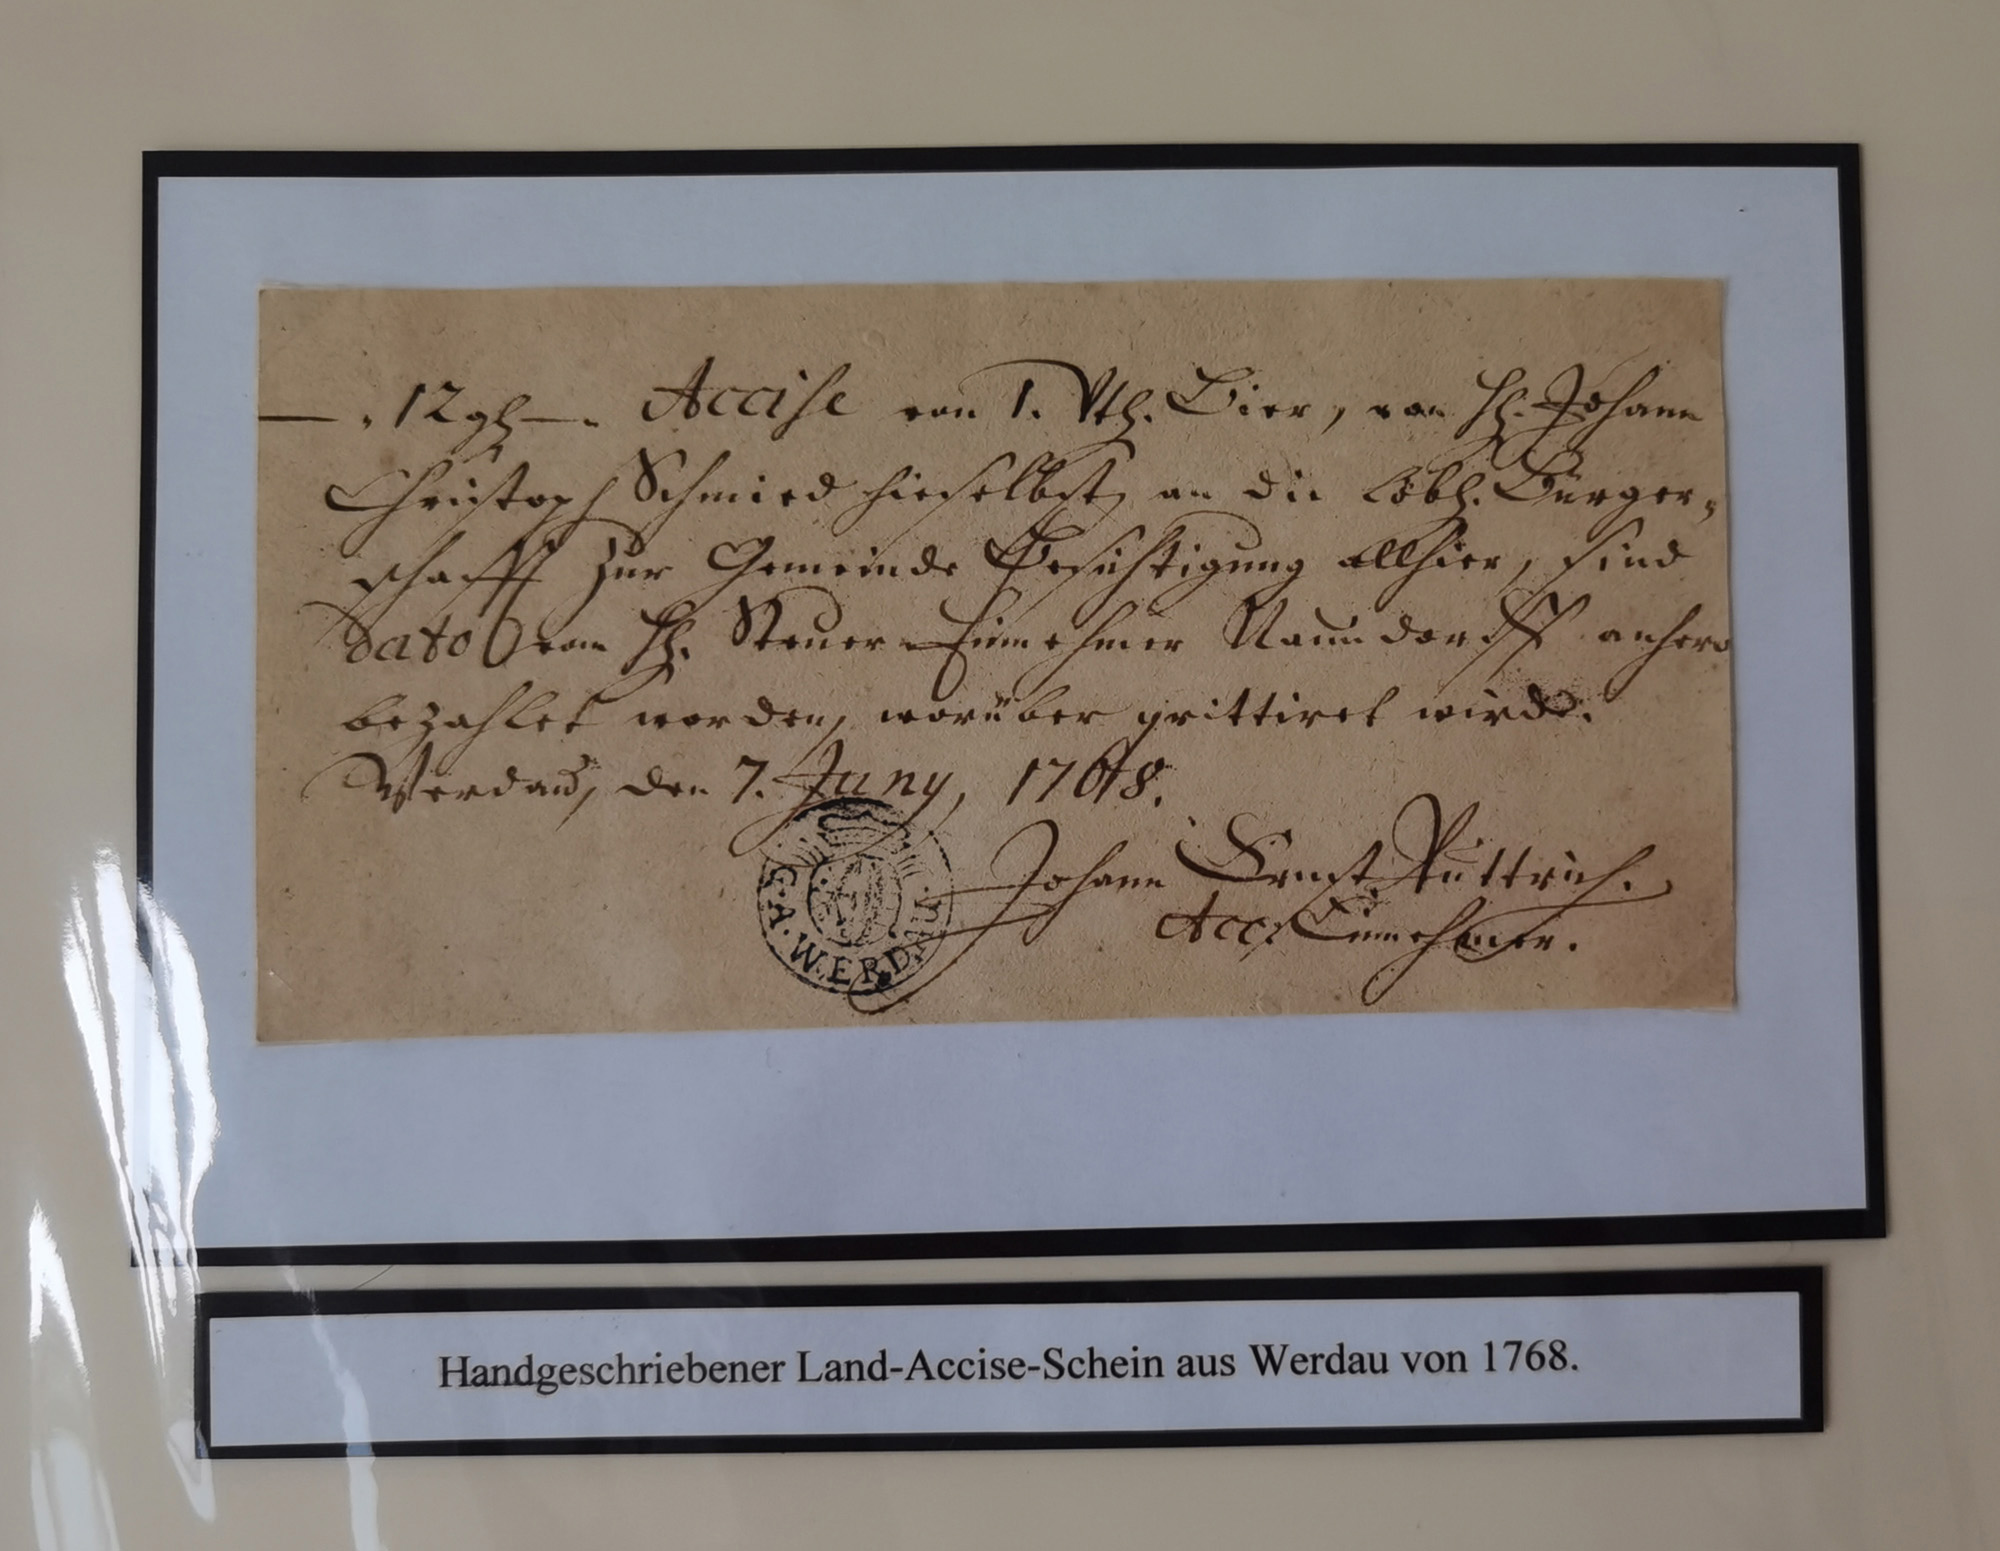 12 gl. Accise von 1. Vtl. Bier, von H. Johann
Christoph Schmied hieselbst, an die löbl. Bürger-
schafft zur Gemeinde Besichtigung allhier, sind
dato von H. Steuer-Einnehmer Naundorff anhero
bezahlet worden, worüber qvittiret wird.
Werdau, den 7. Juny, 1768.
Johann Ernst Püttrich.
Acc. Einnehmer.
G. A. WERDAU.
Handgeschriebener Land-Accise-Schein aus Werdau von 1768.